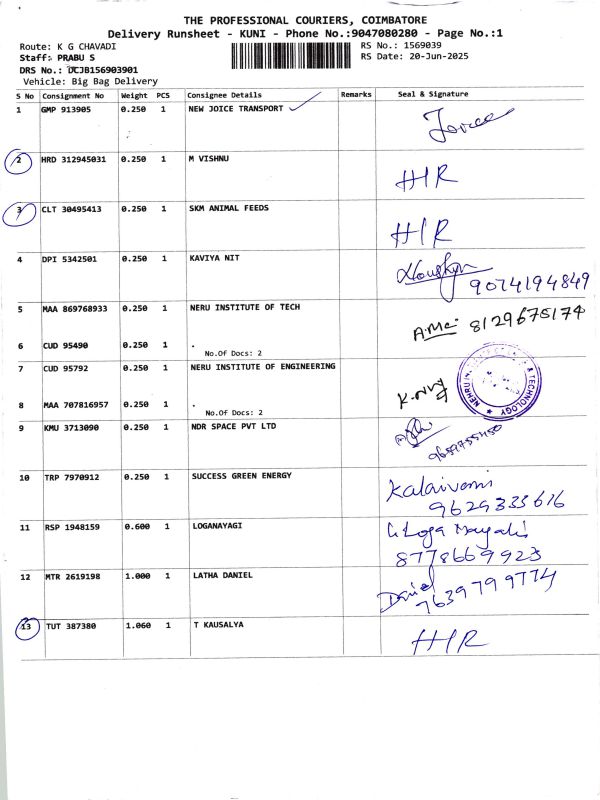 THE PROFESSIONAL COURIERS, COIMBATORE
Delivery Runsheet - KUNI - Phone No.:9047080280 - Page No.:1
Route: K G CHAVADI
RS No.: 1569039
Staff: PRABU S
RS Date: 20-Jun-2025
DRS No.: DCJB156903901
Vehicle: Big Bag Delivery
S No Consignment No Weight PCS Consignee Details Remarks Seal & Signature
1 GMP 913905 0.250 1 NEW JOICE TRANSPORT Joice
2 HRD 312945031 0.250 1 M VISHNU H/R
3 CLT 30495413 0.250 1 SKM ANIMAL FEEDS H/R
4 DPI 5342501 0.250 1 KAVIYA NIT
9074194849
5 MAA 869768933 0.250 1 NERU INSTITUTE OF TECH
8129675174
6 CUD 95490 0.250 1 .
No.Of Docs: 2
7 CUD 95792 0.250 1 NERU INSTITUTE OF ENGINEERING
& TECHNOLOGY
8 MAA 707816957 0.250 1 .
No.Of Docs: 2
9 KMU 3713090 0.250 1 NDR SPACE PVT LTD
9659755450
10 TRP 7970912 0.250 1 SUCCESS GREEN ENERGY Kalaivani
9629333616
11 RSP 1948159 0.600 1 LOGANAYAGI
8778669923
12 MTR 2619198 1.000 1 LATHA DANIEL Daniel
7639799774
13 TUT 387380 1.060 1 T KAUSALYA H/R